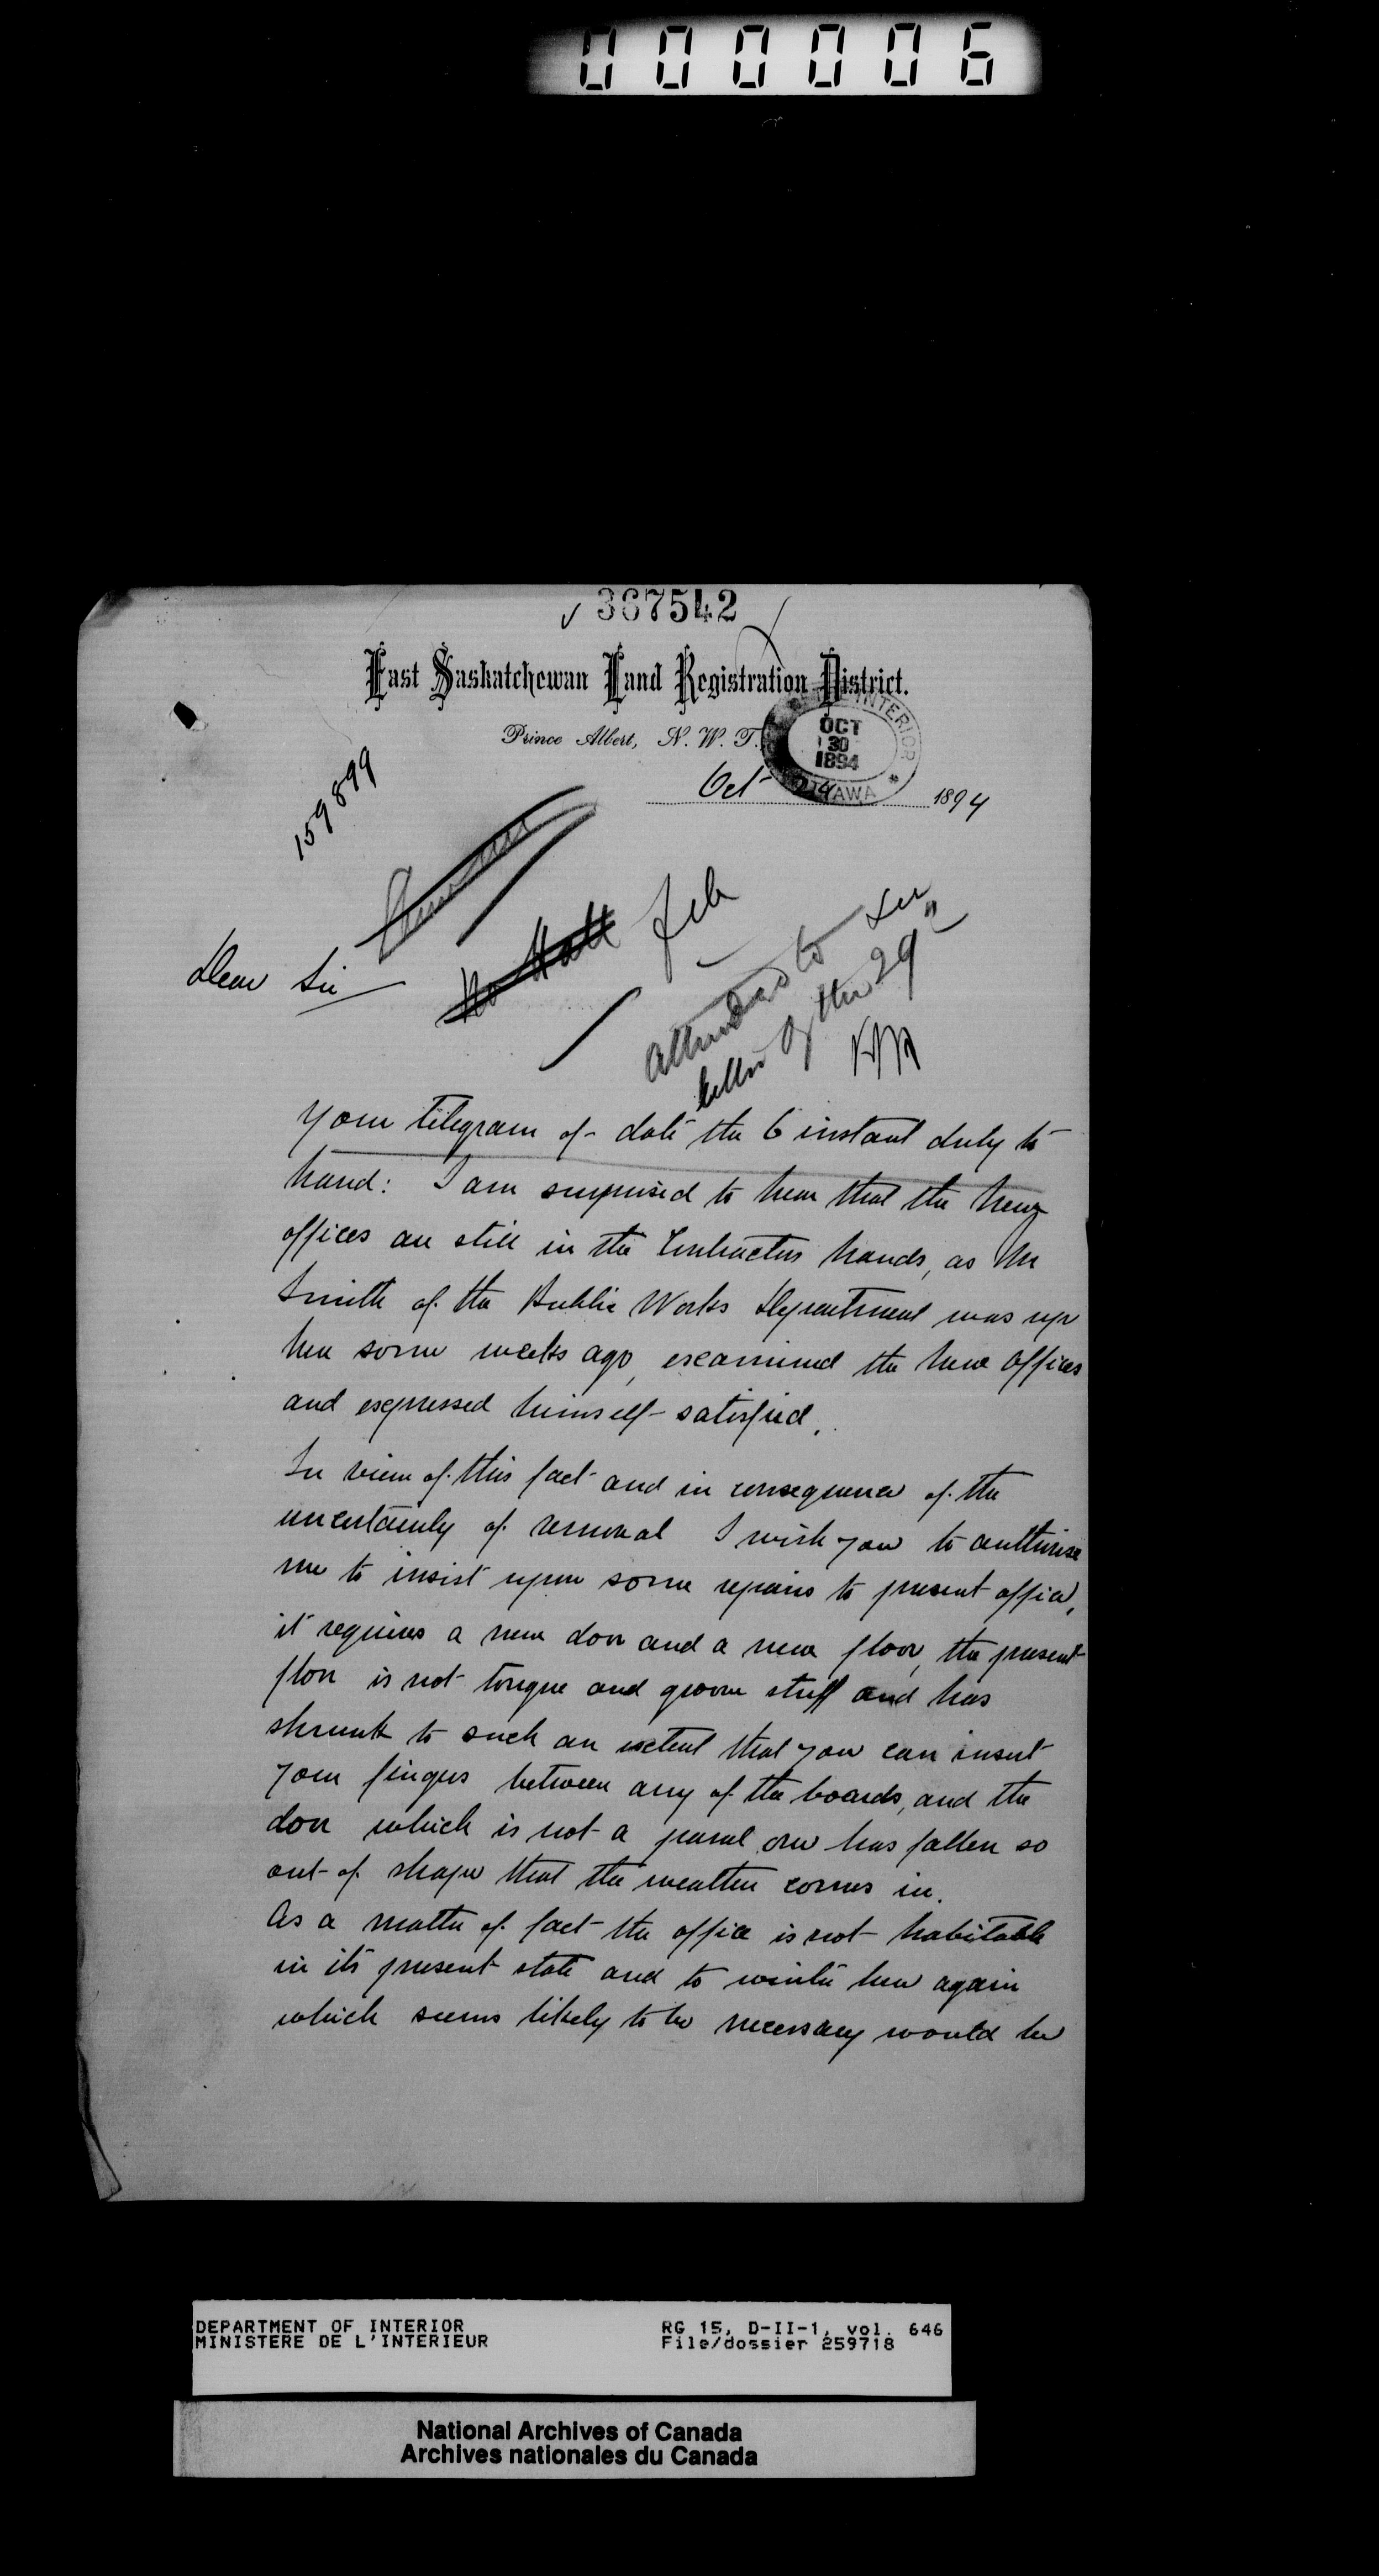 000006
367542
East Saskatchewan Land Registration District.
Prince Albert, N. W. T.
INTERIOR
OCT
30
1894
OTTAWA
Oct 1894
159899
Dear Sir
Mr Hall
attended to see
letter of the 29"
Your telegram of date the 6 instant duly to
hand: I am surprised to hear that the new
offices are still in the Contractors hands, as Mr
Smith of the Public Works Department was up
here some weeks ago, examined the new offices
and expressed himself satisfied.
In view of this fact and in consequence of the
uncertainty of removal I wish you to authorise
me to insist upon some repairs to present office,
it requires a new door and a new floor, the present
floor is not tongue and groove stuff and has
shrunk to such an extent that you can insert
your fingers between any of the boards, and the
door which is not a panel one has fallen so
out of shape that the weather comes in.
As a matter of fact the office is not habitable
in its present state and to winter here again
which seems likely to be necessary would be
DEPARTMENT OF INTERIOR
MINISTERE DE L'INTERIEUR
RG 15, D-II-1, vol. 646
File/dossier 259718
National Archives of Canada
Archives nationales du Canada